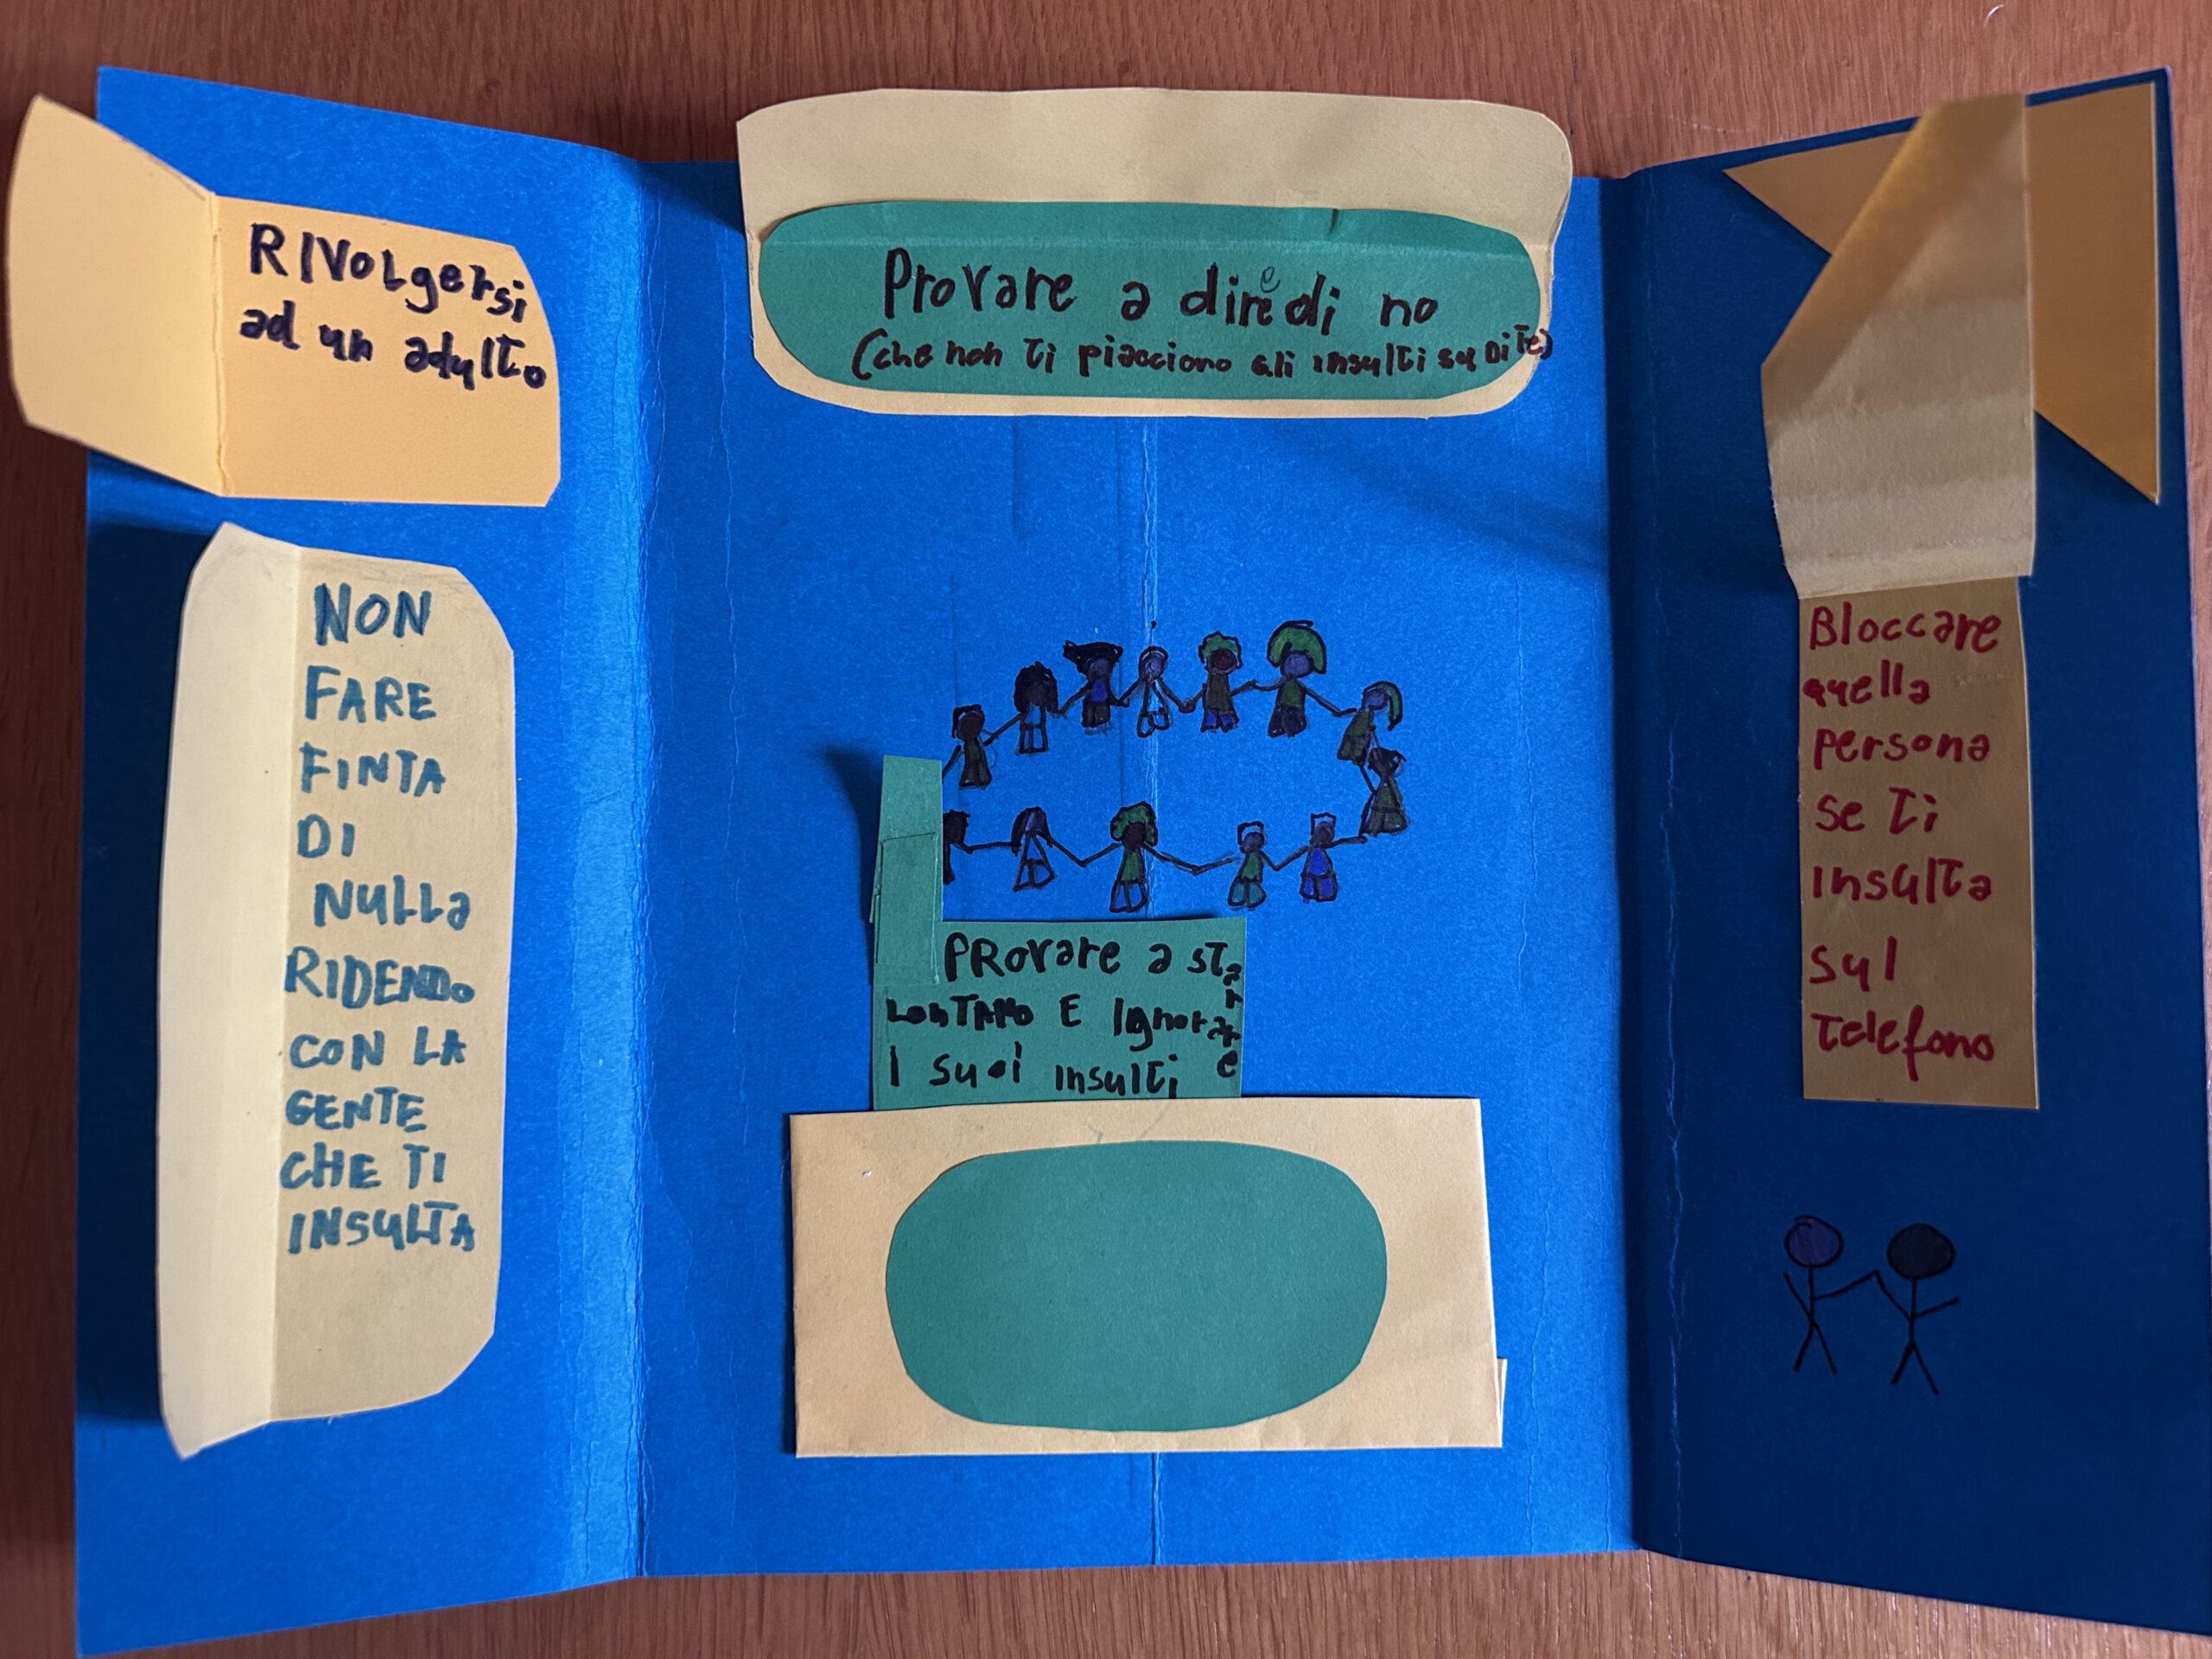 RIVOLgersi
ad un adulto
NON
FARE
FINTA
DI
NULLa
RIDENDo
CON LA
GENTE
CHE TI
INSULTA
Provare a dire di no
(che non ti piacciono gli insulti su di te)
PRovare a stare
LonTANO E Ignorare
I suoi insulti
Bloccare
quella
persona
se ti
insulta
sul
telefono